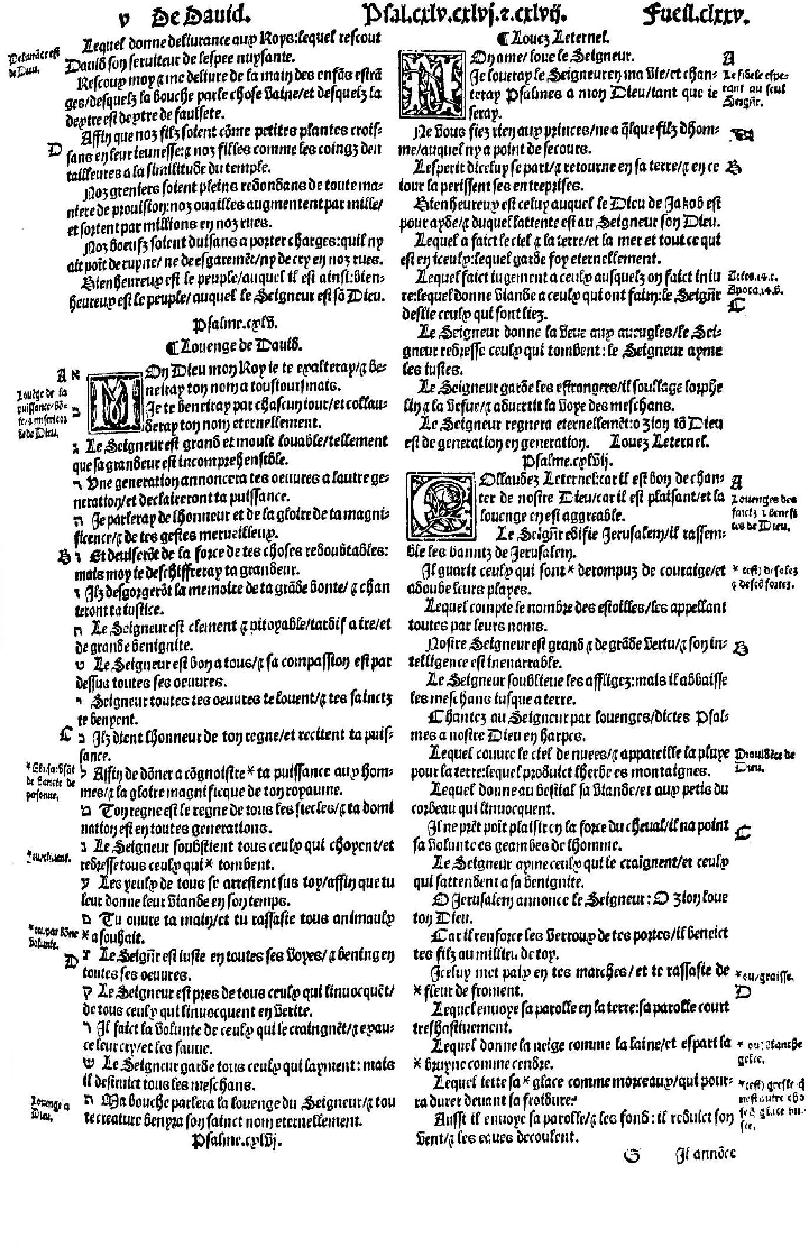 v De David. Psal.cxlv.cxlvj.⁊.cxlvij. Fueil.clxxv.
Lequel donne delivrance aux Roys: lequel rescout
David son serviteur de lespee nuysante.
Rescoux moy/⁊ me delivre de la main des enfãs estrã
ges/desquelz la bouche parle chose vaine/et desquelz la
dextre est dextre de faulsete.
Affin que noz filz soient cõme petites plantes crois-
sans en leur ieunesse: ⁊ noz filles comme les coingz den
tailleures a la similitude du temple.
Noz greniers soient pleins redondans de toute ma-
niere de provision: noz ouailles augmentent par mille/
et sortent par millions en noz rues.
Noz boeufz soient duisans a porter charges: quil ny
ait poit de ruyne/ ne de esgarement/ ny de cry en noz rues.
Bienheureux est le peuple/auquel il est ainsi: bien-
heureux est le peuple/auquel le Seigneur est sõ Dieu.
Psalme.cxlv.
¶ Louenge de David.
MOn Dieu mon Roy ie te exalteray/⁊ be-
neiray ton nom a tousiours mais.
Ie te beneiray par chascun iour/et collau-
deray ton nom eternellement.
ג Le Seigneur est grand et moult louable/tellement
que sa grandeur est incomprehensible.
ד Une generation annoncera tes oeuvres a lautre ge-
neration/et declaireront ta puissance.
ה Ie parleray de lhonneur et de la gloire de ta magni-
ficence/⁊ de tes gestes merveilleux.
B ו Et deviserõt de la force de tes choses redoubtables:
mais moy ie deschiffreray ta grandeur.
ז Ilz desgorgerõt la memoire de ta grãde bonte/⁊ chan
teront ta iustice.
ח Le Seigneur est clement ⁊ pitoyable/tardif a ire/et
de grande benignite.
ט Le Seigneur est bon a tous/⁊ sa compassion est par
dessus toutes ses oeuvres.
י Seigneur toutes tes oeuvres te louent/⁊ tes sainctz
te benyent.
C כ Ilz dient lhonneur de ton regne/et recitent ta puis-
sance.
ל Affin de dõner a cõgnoistre * ta puissance aux hom-
mes/⁊ la gloire magnificque de ton royaume.
מ Ton regne est le regne de tous les siecles/⁊ ta domi
nation est en toutes generations.
נ Le Seigneur soubstient tous ceulx qui choyent/et
redresse tous ceulx qui * tombent.
ע Les yeulx de tous se arrestent sus toy/affin que tu
leur donne leur viande en son temps.
פ Tu ouvre ta main/et tu rassasie tous animaulx
* a souhait.
D צ Le Seigñr est iuste en toutes ses voyes/⁊ bening en
toutes ses oeuvres.
ק Le Seigneur est pres de tous ceulx qui linvocquẽt/
de tous ceulx qui linvocquent en verite.
ר Il faict la volunte de ceulx qui le craingnẽt/⁊ exau-
ce leur cry/et les sauve.
ש Le Seigneur garde tous ceulx qui layment: mais
il destruict tous les meschans.
ת Ma bouche parlera la louenge du Seigneur/⁊ tou
te creature benyra son sainct nom eternellement.
Psalme.cxlvj.
¶ Louez Leternel.
MOn ame/ loue le Seigneur.
Ie loueray le Seigneur en ma vie/et chan-
teray Psalmes a mon Dieu/tant que ie
seray.
Ne vous fiez rien aux princes/ne a q̃lque filz dhom-
me/auquel ny a point de secours.
Lesperit dicelluy se part/⁊ retourne en sa terre/⁊ en ce
iour la perissent ses entreprises.
Bienheureux est celuy auquel le Dieu de Jakob est
pour ayde/⁊ duquel lattente est au Seigneur son Dieu.
Lequel a faict le ciel ⁊ la terre/et la mer et tout ce qui
est en iceulx: lequel garde foy eternellement.
Lequel faict iugement a ceulx ausquelz on faict iniu
re: lequel donne viande a ceulx qui ont faim: le Seigñr
deslie ceulx qui sont liez.
Le Seigneur donne la veue aux aveugles/le Sei-
gneur redresse ceulx qui tombent: le Seigneur ayme
les iustes.
Le Seigneur garde les estrangers/il soullage lorphe
lin ⁊ la vefve/⁊ advertit la voye des meschans.
Le Seigneur regnera eternellemẽt: o Zion tõ Dieu
est de generation en generation. Louez Leternel.
Psalme.cxlvij.
COllaudez Leternel: car il est bon de chan-
ter de nostre Dieu/car il est plaisant/et la
louenge en est aggreable.
Le Seigñr edifie Jerusalem/il rassem-
ble les banniz de Jerusalem.
Il guarit ceulx qui sont * derompuz de couraige/et
adoube leurs playes.
Lequel compte le nombre des estoilles/les appellant
toutes par leurs noms.
Nostre Seigneur est grand ⁊ de grãde vertu/⁊ son in-
telligence est inenarrable.
Le Seigneur soublieve les affligez: mais il abbaisse
les meschans iusque a terre.
Chantez au Seigneur par louenges/dictes Psal-
mes a nostre Dieu en harpes.
Lequel couvre le ciel de nuees/⁊ appareille la pluye
pour la terre: lequel produict lherbe es montaignes.
Lequel donne au bestial sa viande/et aux petis du
corbeau qui linvocquent.
Il ne prẽt poit plaisir en la force du cheval/il na point
sa volunte es geambes de lhomme.
Le Seigneur ayme ceulx qui le craignent/et ceulx
qui sattendent a sa benignite.
O Jerusalem annonce le Seigneur: O Zion loue
ton Dieu.
Car il renforce les verroux de tes portes/il beneict
tes filz au millieu de toy.
Icelluy met paix en tes marches/et te rassasie de
* fleur de froment.
Lequel envoye sa parolle en la terre: sa parolle court
treshastivement.
Lequel donne la neige comme la laine/et espart la
* bruyne comme cendre.
Lequel iette sa * glace comme morceaux/qui pour-
ra durer devant sa froidure?
Aussi il envoye sa parolle/⁊ les fond: il reduict son
vent/⁊ les eaues decoulent.
G Il annõce